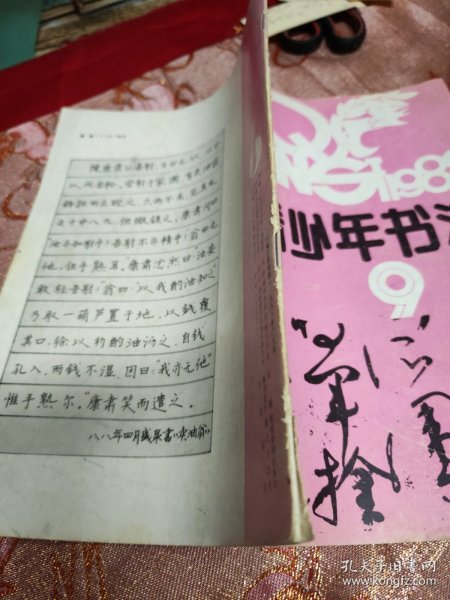 陈康肃公善射,当世无双,公亦
以此自矜。尝射于家圃,有卖油翁
释担而立睨之,久而不去。见其发
矢十中八九,但微颔之。康肃问曰
汝亦知射乎?吾射不亦精乎?翁曰无
他,但手熟耳。康肃忿然曰:"汝安
敢轻吾射!"翁曰:"以我酌油知之"
乃取一葫芦置于地,以钱覆
其口,徐以杓酌油沥之,自钱
孔入,而钱不湿。因曰:"我亦无他"
惟手熟尔。"康肃笑而遣之。
八八年四月 书《卖油翁》
198
少年书法
9
孔夫子旧书网